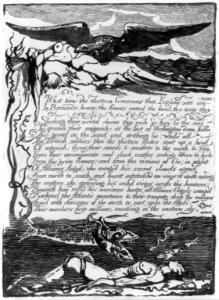 What time the thirteen Governors that England sent con-
-vene
In Bernards house; the flames coverd the land, they rouze they cry
Shaking their mental chains they rush in fury to the sea
To quench their anguish; at the feet of Washington down falln
They grovel on the sand and writhing lie, while all
The British soldiers thro' the thirteen states sent up a howl
Of anguish: threw their swords & muskets to the earth & ran
From their encampments and dark castles seeking where to hide
From the grim flames; and from the visions of Orc; in sight
Of Albions Angel; who enrag'd his secret clouds open'd
From north to south, and burnt outstretchd on wings of wrath cov'ring
The eastern sky, spreading his awful wings across the heavens;
Beneath him roll'd his num'rous hosts, all Albions Angels camp'd
Darkend the Atlantic mountains & their trumpets shook the valleys
Arm'd with diseases of the earth to cast upon the Abyss,
Their numbers forty millions, must'ring in the eastern sky.